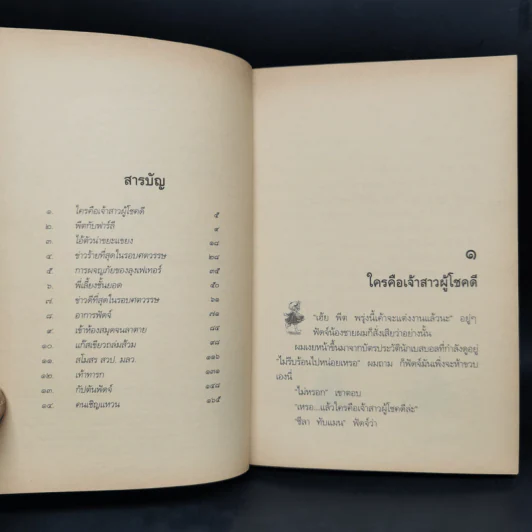 สารบัญ
๑. ใครคือเจ้าสาวผู้โชคดี ๕
๒. พีตกับฟาร์ลี ๙
๓. ไอ้ตัวน่าขยะแขยง ๑๘
๔. ข่าวร้ายที่สุดในรอบศตวรรษ ๒๘
๕. การผจญภัยของลุงเฟเทอร์ ๓๕
๖. พี่เลี้ยงชั้นยอด ๕๐
๗. ข่าวดีที่สุดในรอบศตวรรษ ๖๑
๘. อาการฟัดจ์ ๗๑
๙. เข้าห้องสมุดจนลาตาย
๑๐. แก๊สเขียวถล่มส้วม
๑๑. สโมสร สวป. มลว. ๑๑๖
๑๒. เท้าทารก
๑๓. กัปตันฟัดจ์ ๑๔๘
๑๔. คนเชิญแหวน ๑๖๕
๑
ใครคือเจ้าสาวผู้โชคดี
"เฮ้ย พีต พรุ่งนี้เค้าจะแต่งงานแล้วนะ" อยู่ๆ
ฟัดจ์น้องชายผมก็สั่งเสียว่าอย่างนั้น
ผมเงยหน้าขึ้นมาจากบัตรประวัตินักเบสบอลที่กำลังดูอยู่
"ไม่รีบร้อนไปหน่อยเหรอ" ผมถาม ก็ฟัดจ์มันเพิ่งจะห้าขวบ
เองนี่
"ไม่หรอก" เขาตอบ
"เหรอ...แล้วใครคือเจ้าสาวผู้โชคดีล่ะ"
"ชีลา ทับแมน" ฟัดจ์ว่า